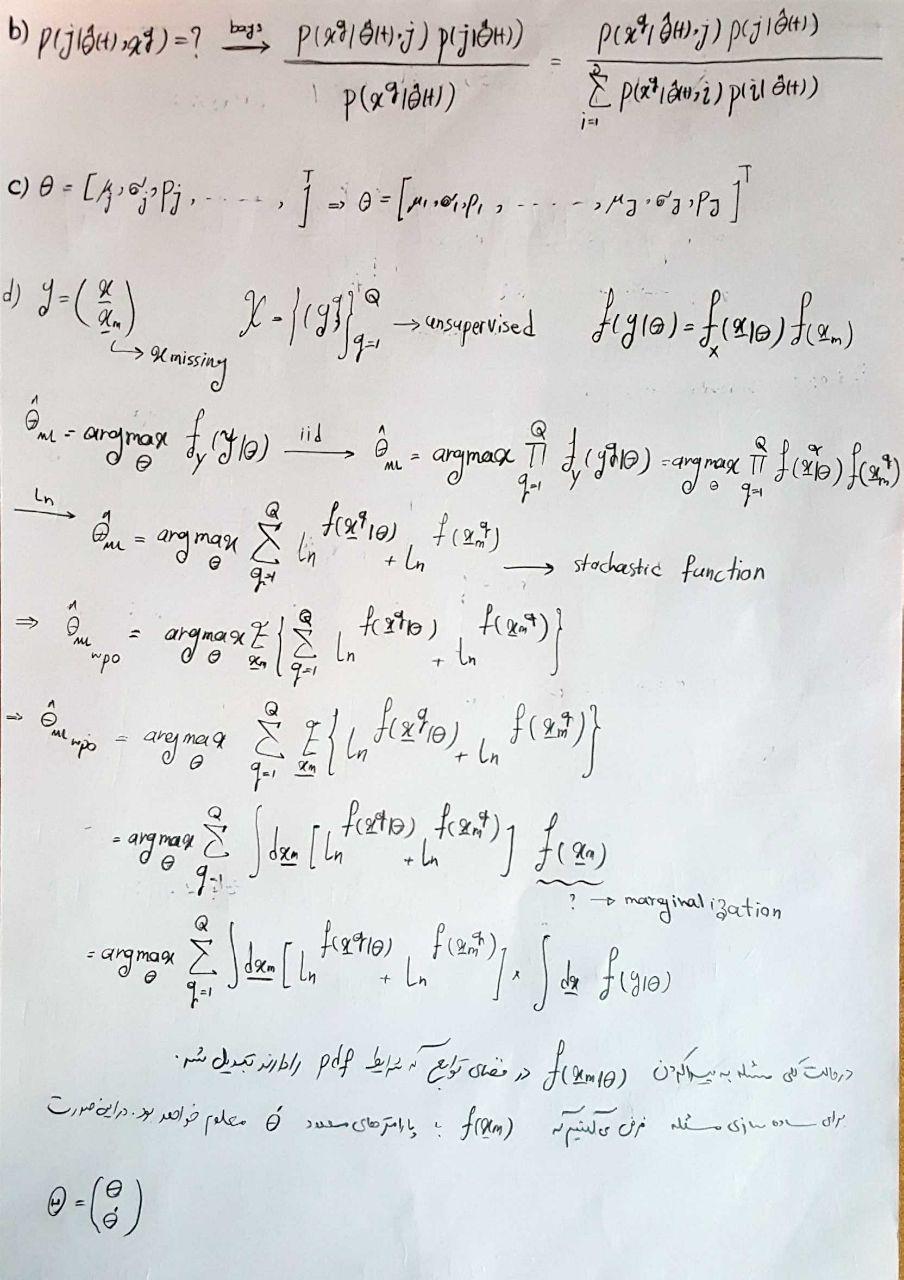 b) p(j|θ̂(t), x^q) = ? bays → p(x^q|θ̂(t), j) p(j|θ̂(t)) / p(x^q|θ̂(t)) = p(x^q|θ̂(t), j) p(j|θ̂(t)) / Σ_{i=1} p(x^q|θ̂(t), i) p(i|θ̂(t))
c) θ = [μ_j, σ_j, P_j, ......, ]^T ⇒ θ = [μ_1, σ_1, p_1, ......, μ_J, σ_J, P_J]^T
d) y = (x / x_m) X = {(y^q)}_{q=1}^Q → unsupervised f(y|θ) = f_x(x|θ) f(x_m)
↳ x missing
θ̂_ML = argmax_θ f_y(y|θ) iid → θ̂_ML = argmax Π_{q=1}^Q f_y(y^q|θ) = argmax_θ Π_{q=1}^Q f(x^q|θ) f(x_m^q)
Ln → θ̂_ML = argmax_θ Σ_{q=1}^Q Ln f(x^q|θ) + Ln f(x_m^q) → stochastic function
⇒ θ̂_ML wpo = argmax_θ E_{x_m} { Σ_{q=1}^Q Ln f(x^q|θ) + Ln f(x_m^q) }
⇒ θ̂_ML wpo = argmax_θ Σ_{q=1}^Q E_{x_m} { Ln f(x^q|θ) + Ln f(x_m^q) }
= argmax_θ Σ_{q=1}^Q ∫ dx_m [ Ln f(x^q|θ) + Ln f(x_m^q) ] f(x_m)
? → marginalization
= argmax_θ Σ_{q=1}^Q ∫ dx_m [ Ln f(x^q|θ) + Ln f(x_m^q) ] × ∫ dx f(y|θ)
در حالت کلی مسئله به پیدا کردن f(x_m|θ) در فضای توابع که شرایط pdf را دارند تبدیل شد.
برای ساده سازی مسئله فرض می کنیم که f(x_m) با پارامترهای محدود θ́ معلوم خواهد بود. در این صورت
Θ = (θ / θ́)